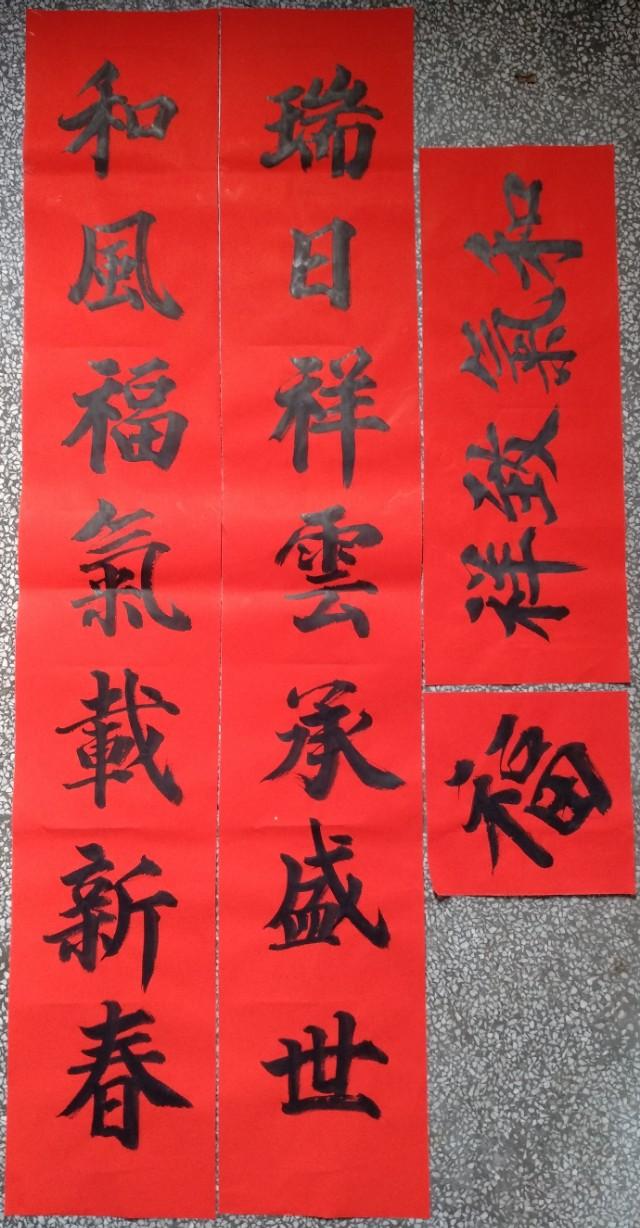 瑞日祥雲承盛世
和風福氣載新春
和氣致祥
福